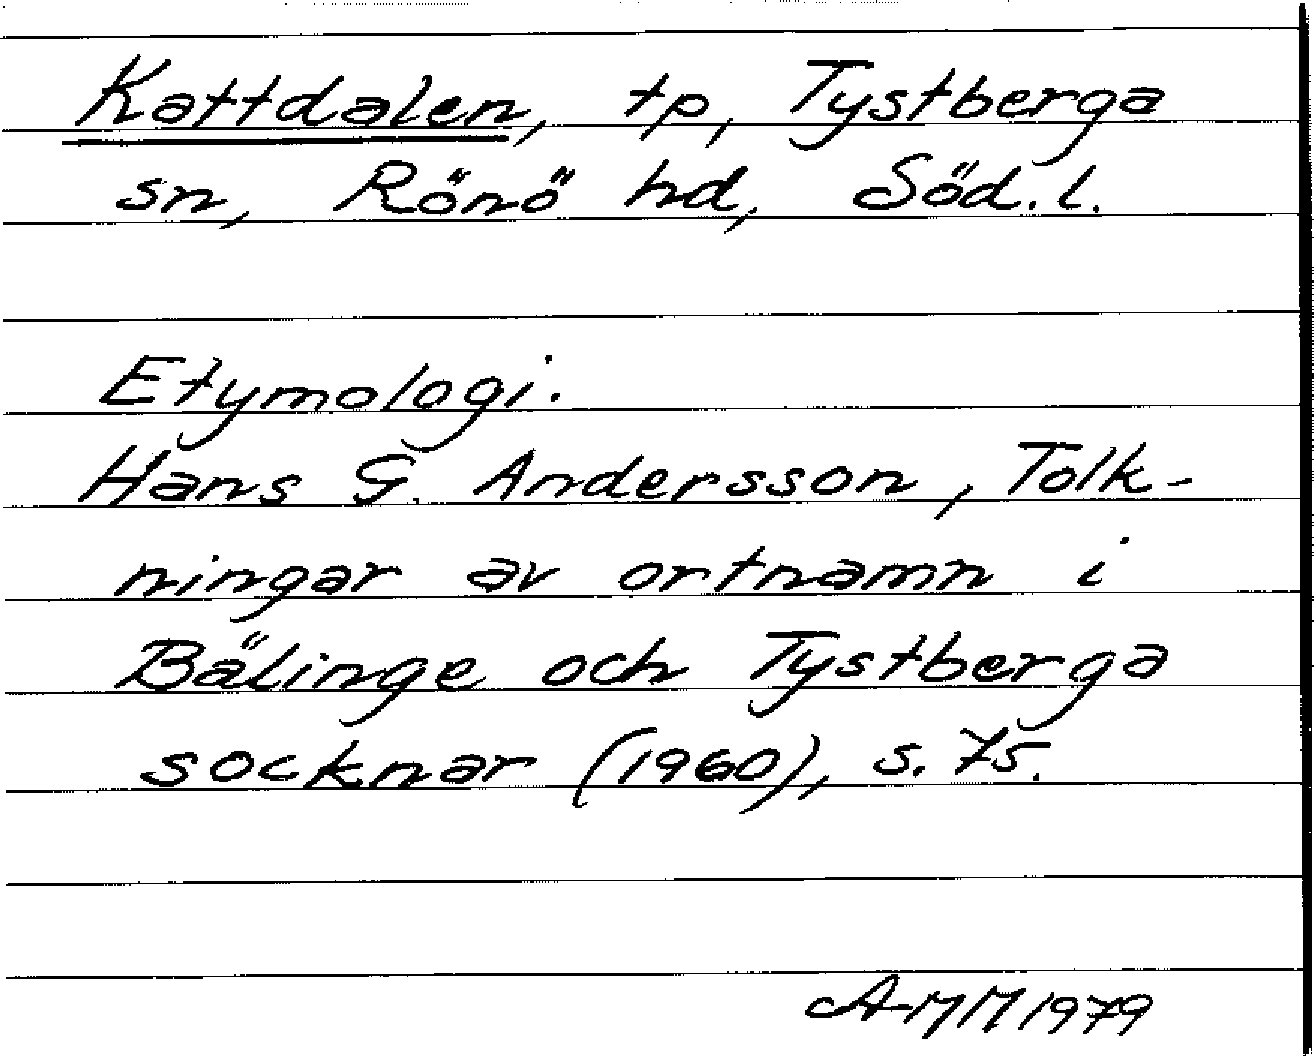 Kattdalen, tp, Tystberga
sn, Rönö hd, Söd. l.
Etymologi.
Hans G. Andersson, Tolk-
ningar av ortnamn i
Bälinge och Tystberga
socknar (1960), s. 75.
A-MM 1979